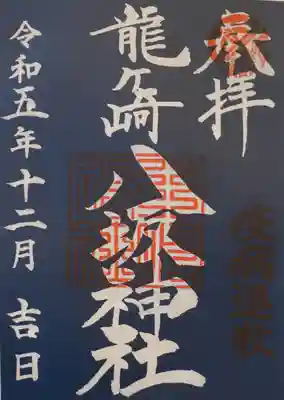 奉拝
龍ケ崎
八坂神社
令和五年十二月 吉日